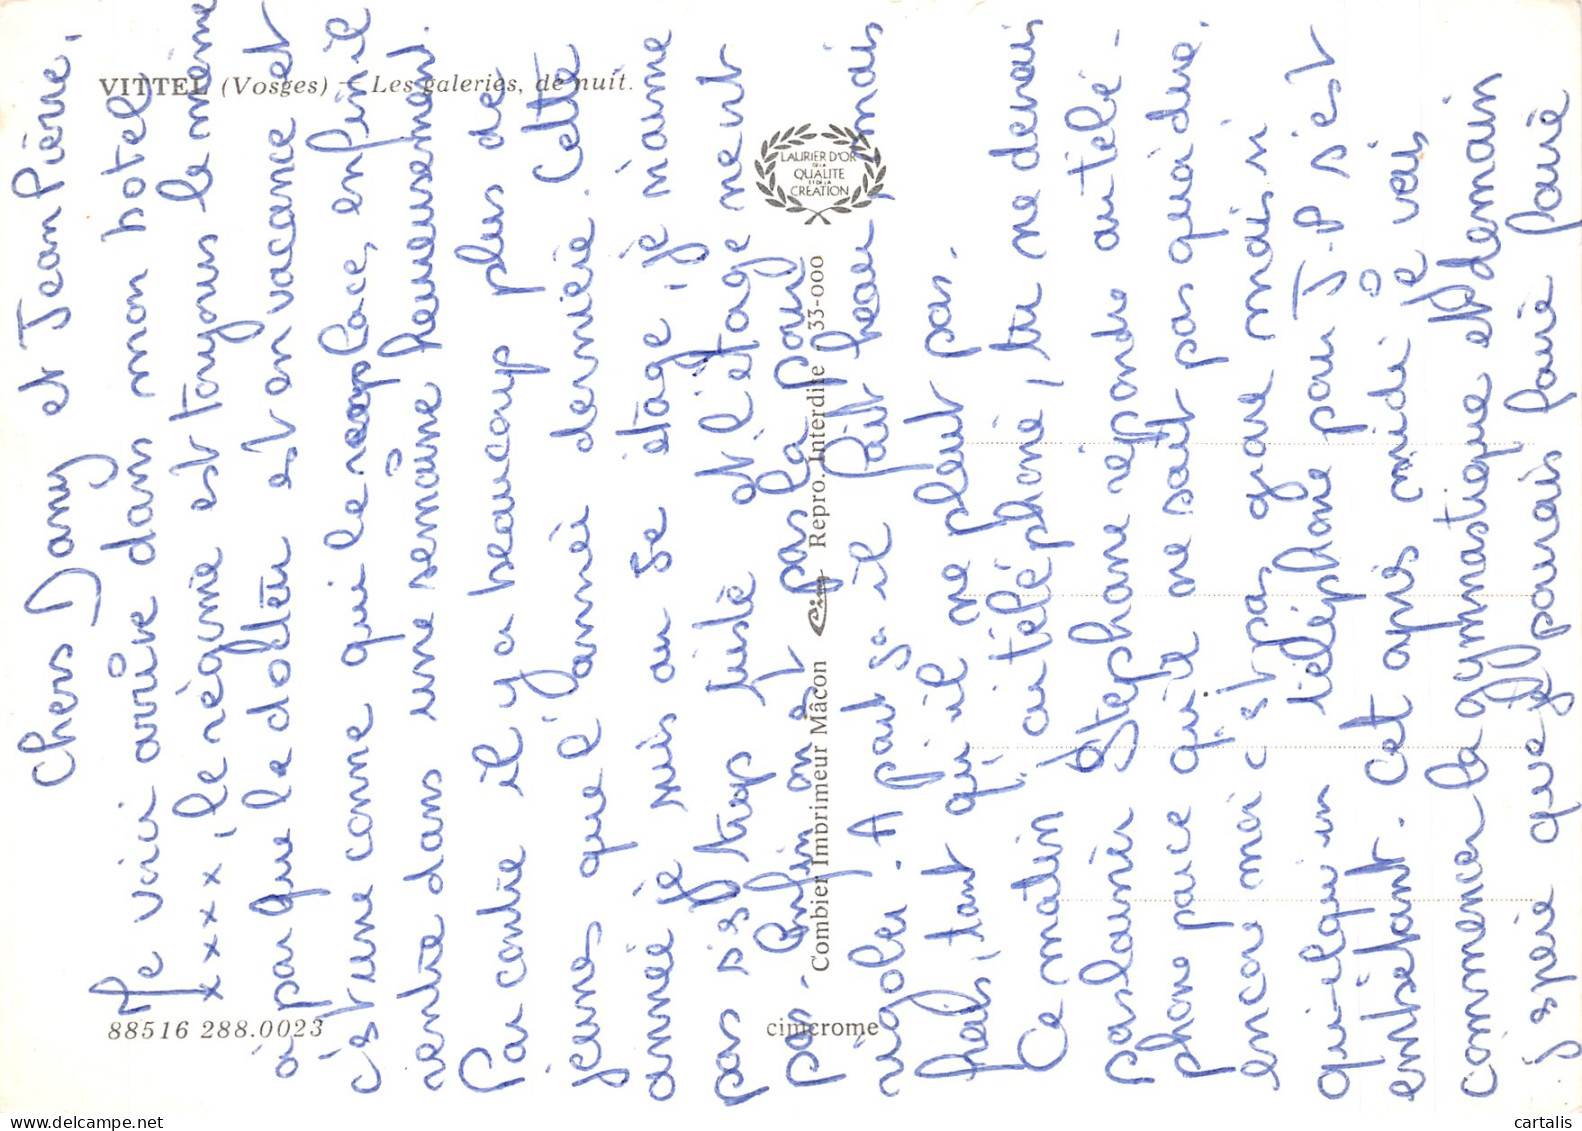 VITTEL (Vosges) — Les galeries, de nuit.
LAURIER D'OR
DE LA
QUALITE
ET DE LA
CREATION
Combier Imprimeur Mâcon Cim Repro. Interdite - 33-000
88516 288.0023
cimcrome
Chers Dany et Jean Pierre,
Me voici arrivé dans mon hotel
xxxx, le régime est toujours le meme
à par que la docteur est en vacance et
c'est une conne qui le remplace, enfin il
rentre dans une semaine heureusement.
Par contre il y a beaucoup plus de
jeunes que l'année dernière. Cette
année je suis au 5e étage, je m'aime
pas trop juste et l'étage ment
pas. Enfin on est pas là pour
rigoler. A part sa il fait beau, mais
frais, tant qu'il ne pleut pas.
Ce matin au téléphone, tu ne devais
pas laisser Stephane réponde au télé-
phone parce qu'il ne sait pas quoi dire.
encore moi c'est pas grave mais si
quelqu'un téléphone pour J-P s'est
embêtant. Cet après midi je vais
commencer la gymnastique et demain
j'espère que je pourais faire